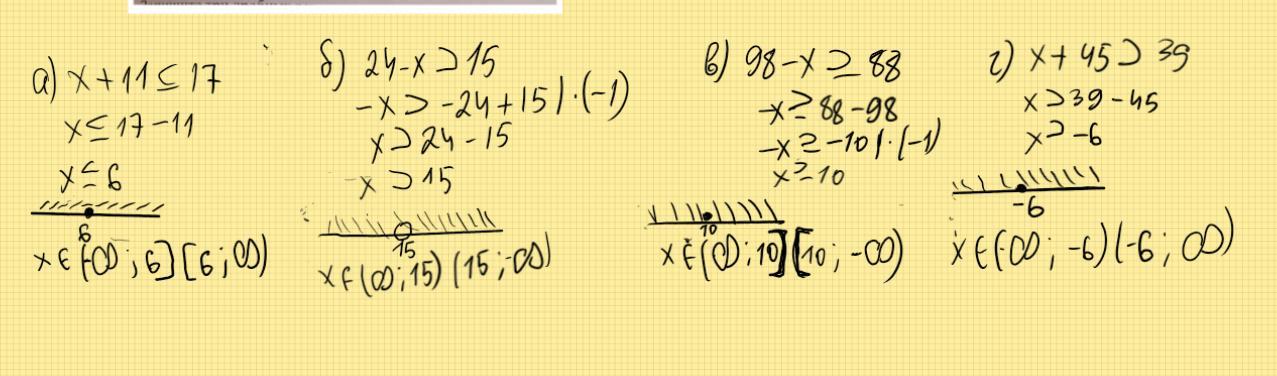 а) x + 11 ≤ 17
x ≤ 17 - 11
x ≤ 6
6
x ∈ (-∞; 6] [6; ∞)
б) 24 - x > 15
-x > -24 + 15 | · (-1)
x > 24 - 15
x > 15
15
x ∈ (∞; 15) (15; -∞)
в) 98 - x ≥ 88
-x ≥ 88 - 98
-x ≥ -10 | · (-1)
x ≥ 10
10
x ∈ (∞; 10] [10; -∞)
г) x + 45 > 39
x > 39 - 45
x > -6
-6
x ∈ (-∞; -6) (-6; ∞)